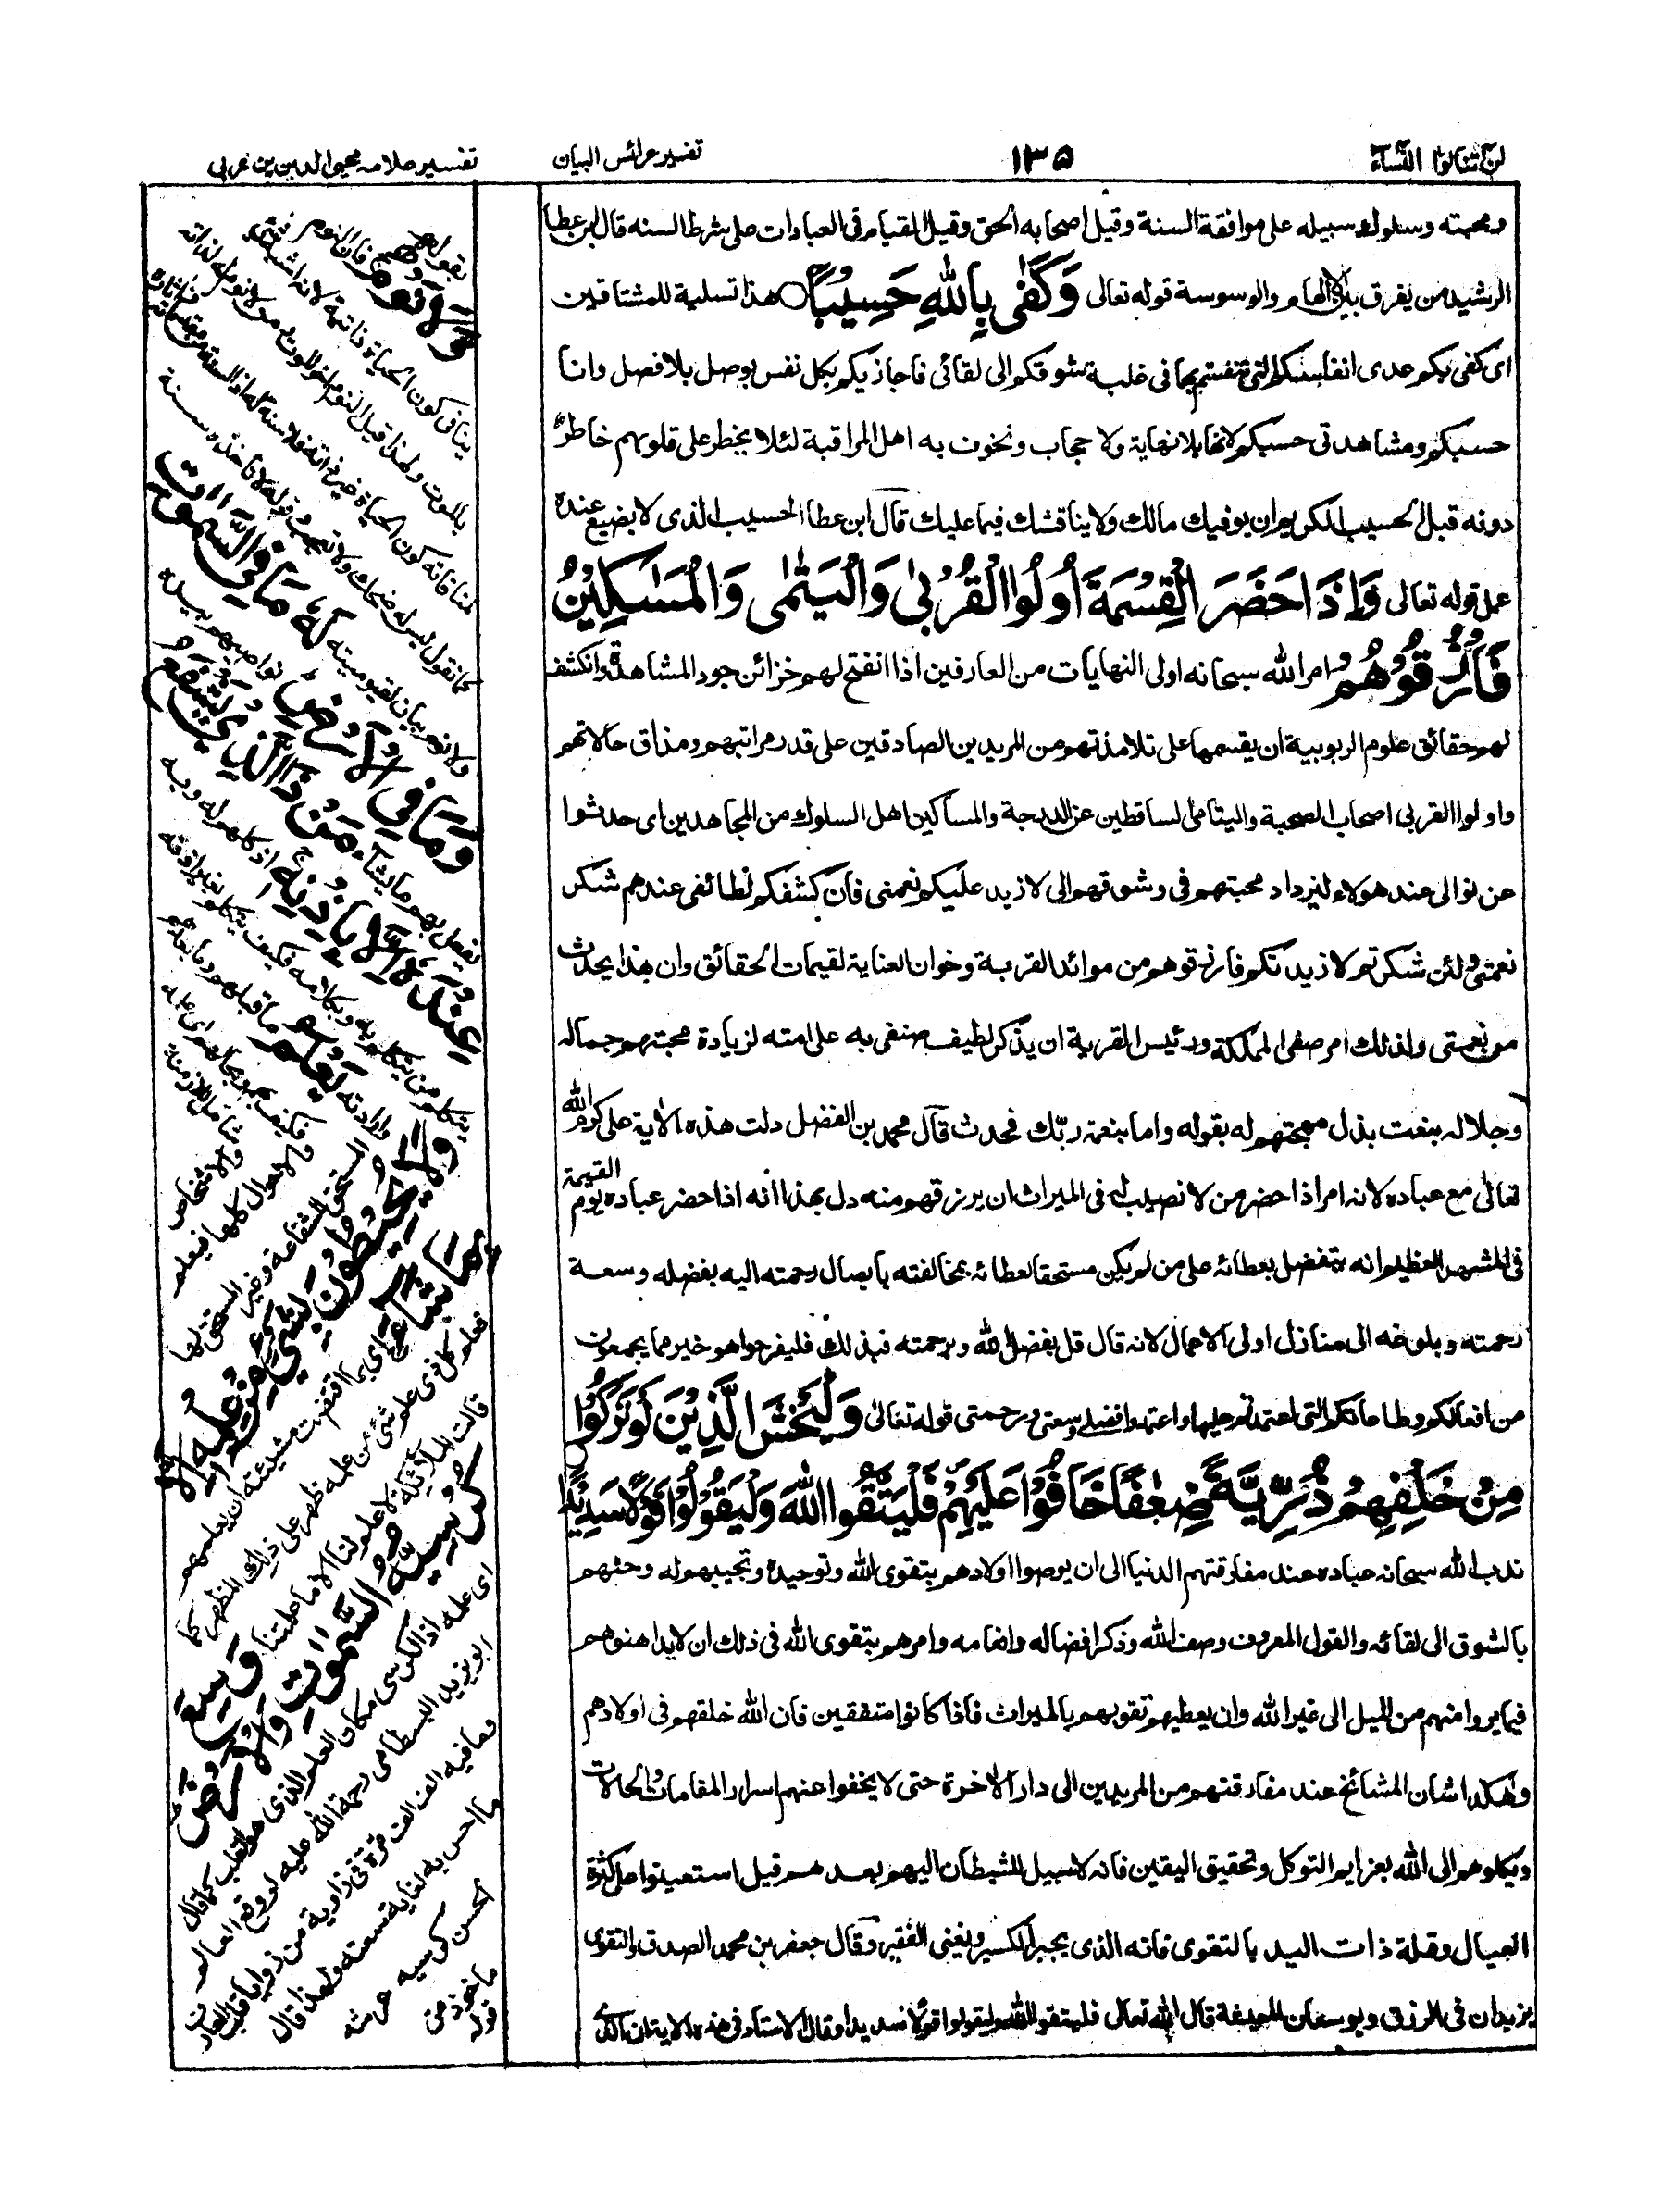 لن تنالوا النساء
١٣٥
تفسير عرائس البيان
تفسير علامه محيى الدين بن عربى
ومحبته وسلوك سبيله على موافقة السنة وقيل اصحابه الحق وقيل القيام فى العبادات على شرط السنه قال ابن عطا
الرشيد من يفرق بين الالهام والوسوسة قوله تعالى وَكَفٰى بِاللّٰهِ حَسِيْبًا هذا تسلية للمشتاقين
اى كفى بكم عدى انفاسكم التى تنفستم بها فى غلبة شوقكم الى لقائى فاجازيكم بكل نفس بوصل بلا فصل وانا
حسبكم ومشاهدتى حسبكم لانها بلا نهاية ولا حجاب ونخوف به اهل المراقبة لئلا يخطر على قلوبهم خاطر
دونه قبل الحسيب الكريم ان يوفيك مالك ولا يناقشك فيما عليك قال ابن عطا الحسيب الذى لا يضيع عنده
عمل قوله تعالى وَاِذَا حَضَرَ الْقِسْمَةَ اُولُوا الْقُرْبٰى وَالْيَتٰمٰى وَالْمَسٰكِيْنُ
فَارْزُقُوْهُمْ امر الله سبحانه اولى النهايات من العارفين اذا انفتح لهم خزائن جود المشاهدة وانكشف
لهم حقائق علوم الربوبية ان يقسمها على تلامذتهم من المريدين الصادقين على قدر مراتبهم ومذاق حالاتهم
واولوا القربى اصحاب الصحبة واليتامى الساقطين عن الدرجة والمساكين اهل السلوك من المجاهدين اى حدثوا
عن نوالى عند هولاء ليزداد محبتهم فى وشوقهم الى لازيد عليكم نعمتى فان كشفكم لطائفى عندهم شكر
نعمتى ولئن شكرتم لازيدنكم فارزقوهم من موائد القربة وخوان العناية لقيمات الحقائق وان هذا يحدث
من نعمتى ولذلك امر صفى المملكة ورئيس القربة ان يذكر لطيف صنفى به على امته لزيادة محبتهم جماله
وجلاله بنعت بذل مهجتهم له بقوله واما بنعمة ربك فحدث قال محمد بن الفضل دلت هذه الاية على كرم الله
تعالى مع عباده لانه امر اذا حضر من لا نصيب له فى الميراث ان يرزقهم منه دل بهذا انه اذا حضر عباده يوم القيمة
فى المشهد العظيم انه يتفضل بعطائه على من لم يكن مستحقا لعطائه بمخالفته بايصال رحمته اليه بفضله وسعة
رحمته وبلوغه الى منازل اولى الاعمال لانه قال قل بفضل الله وبرحمته فبذلك فليفرحوا هو خير مما يجمعون
من افعالكم وطاعاتكم التى اعتمدتم عليها واعتمدوا فضلى وسعتى ورحمتى قوله تعالى وَلْيَخْشَ الَّذِيْنَ لَوْ تَرَكُوْا
مِنْ خَلْفِهِمْ ذُرِّيَّةً ضِعٰفًا خَافُوْا عَلَيْهِمْ فَلْيَتَّقُوا اللّٰهَ وَلْيَقُوْلُوْا قَوْلًا سَدِيْدًا
ندب الله سبحانه عباده عند مفارقتهم الدنيا الى ان يوصوا اولادهم بتقوى الله وتوحيده وتحبيبهم له وحثهم
بالشوق الى لقائه والقول المعروف وصف الله وذكر افضاله وانعامه وامرهم بتقوى الله فى ذلك ان لا يداهنوهم
فيما يروا منهم من الميل الى غير الله وان يعطيهم تقويهم بالميراث فاذا كانوا متفقين فان الله خلقهم فى اولادهم
وهكذا شان المشائخ عند مفارقتهم من المريدين الى دار الاخرة حتى لا يخفوا عنهم اسرار المقامات والحالات
ويكلوهم الى الله بعزايم التوكل وتحقيق اليقين فانه لا سبيل للشيطان اليهم بعدهم قيل استعينوا على كثرة
العيال وقلة ذات اليد بالتقوى فانه الذى يجبر الكسير ويغنى الفقير وقال جعفر بن محمد الصدق والتقوى
يزيدان فى الرزق ويوسعان المعيشة قال الله تعالى فليتقوا الله وليقولوا قولا سديدا وقال الاستاد فى هذه الاية ان الذى
وَلَا نَوْمٌ
ينافى كون الحياة ذاتية
كما نقول ليس له ضحك ولا تعجب وقوله لا تاخذه سنة
ولا نوم بيان لقيوميته لَهٗ مَا فِى السَّمٰوٰتِ
وَمَا فِى الْاَرْضِ نواصيهم بيده
يفعل بهم ما يشاء مَنْ ذَا الَّذِىْ يَشْفَعُ
عِنْدَهٗ اِلَّا بِاِذْنِهٖ اذ كلهم له وبه
يتكلم من يتكلم به وبكلامه فكيف يتكلم بغير اذنه
وارادته يَعْلَمُ ما قبلهم وما بعدهم
فكيف بهم وبحالهم اى علمه
شامل للازمنة
والاشخاص
والاحوال كلها فيعلم
المستحق للشفاعة وغير المستحق لها
وَلَا يُحِيْطُوْنَ بِشَىْءٍ مِّنْ عِلْمِهٖ اِلَّا
بِمَا شَاءَ اى بما اقتضت مشيئته ان يعلمهم
فعلم كل ذى علم شئ من علمه ظهر على ذلك المظهر كما
قالت الملائكة لا علم لنا الا ما علمتنا وَسِعَ
كُرْسِيُّهُ السَّمٰوٰتِ وَالْاَرْضَ
اى علمه اذ الكرسى مكان العلم الذى هو القلب كما قال
ابو يزيد البسطامى رحمة الله عليه لو وقع العالم
وما فيه الف الف مرة فى زاوية من زوايا قلب العارف
ما احس به لغاية سعته ولهذا قال
الحسن كرسيه عرشه
ماخوذ من
قوله